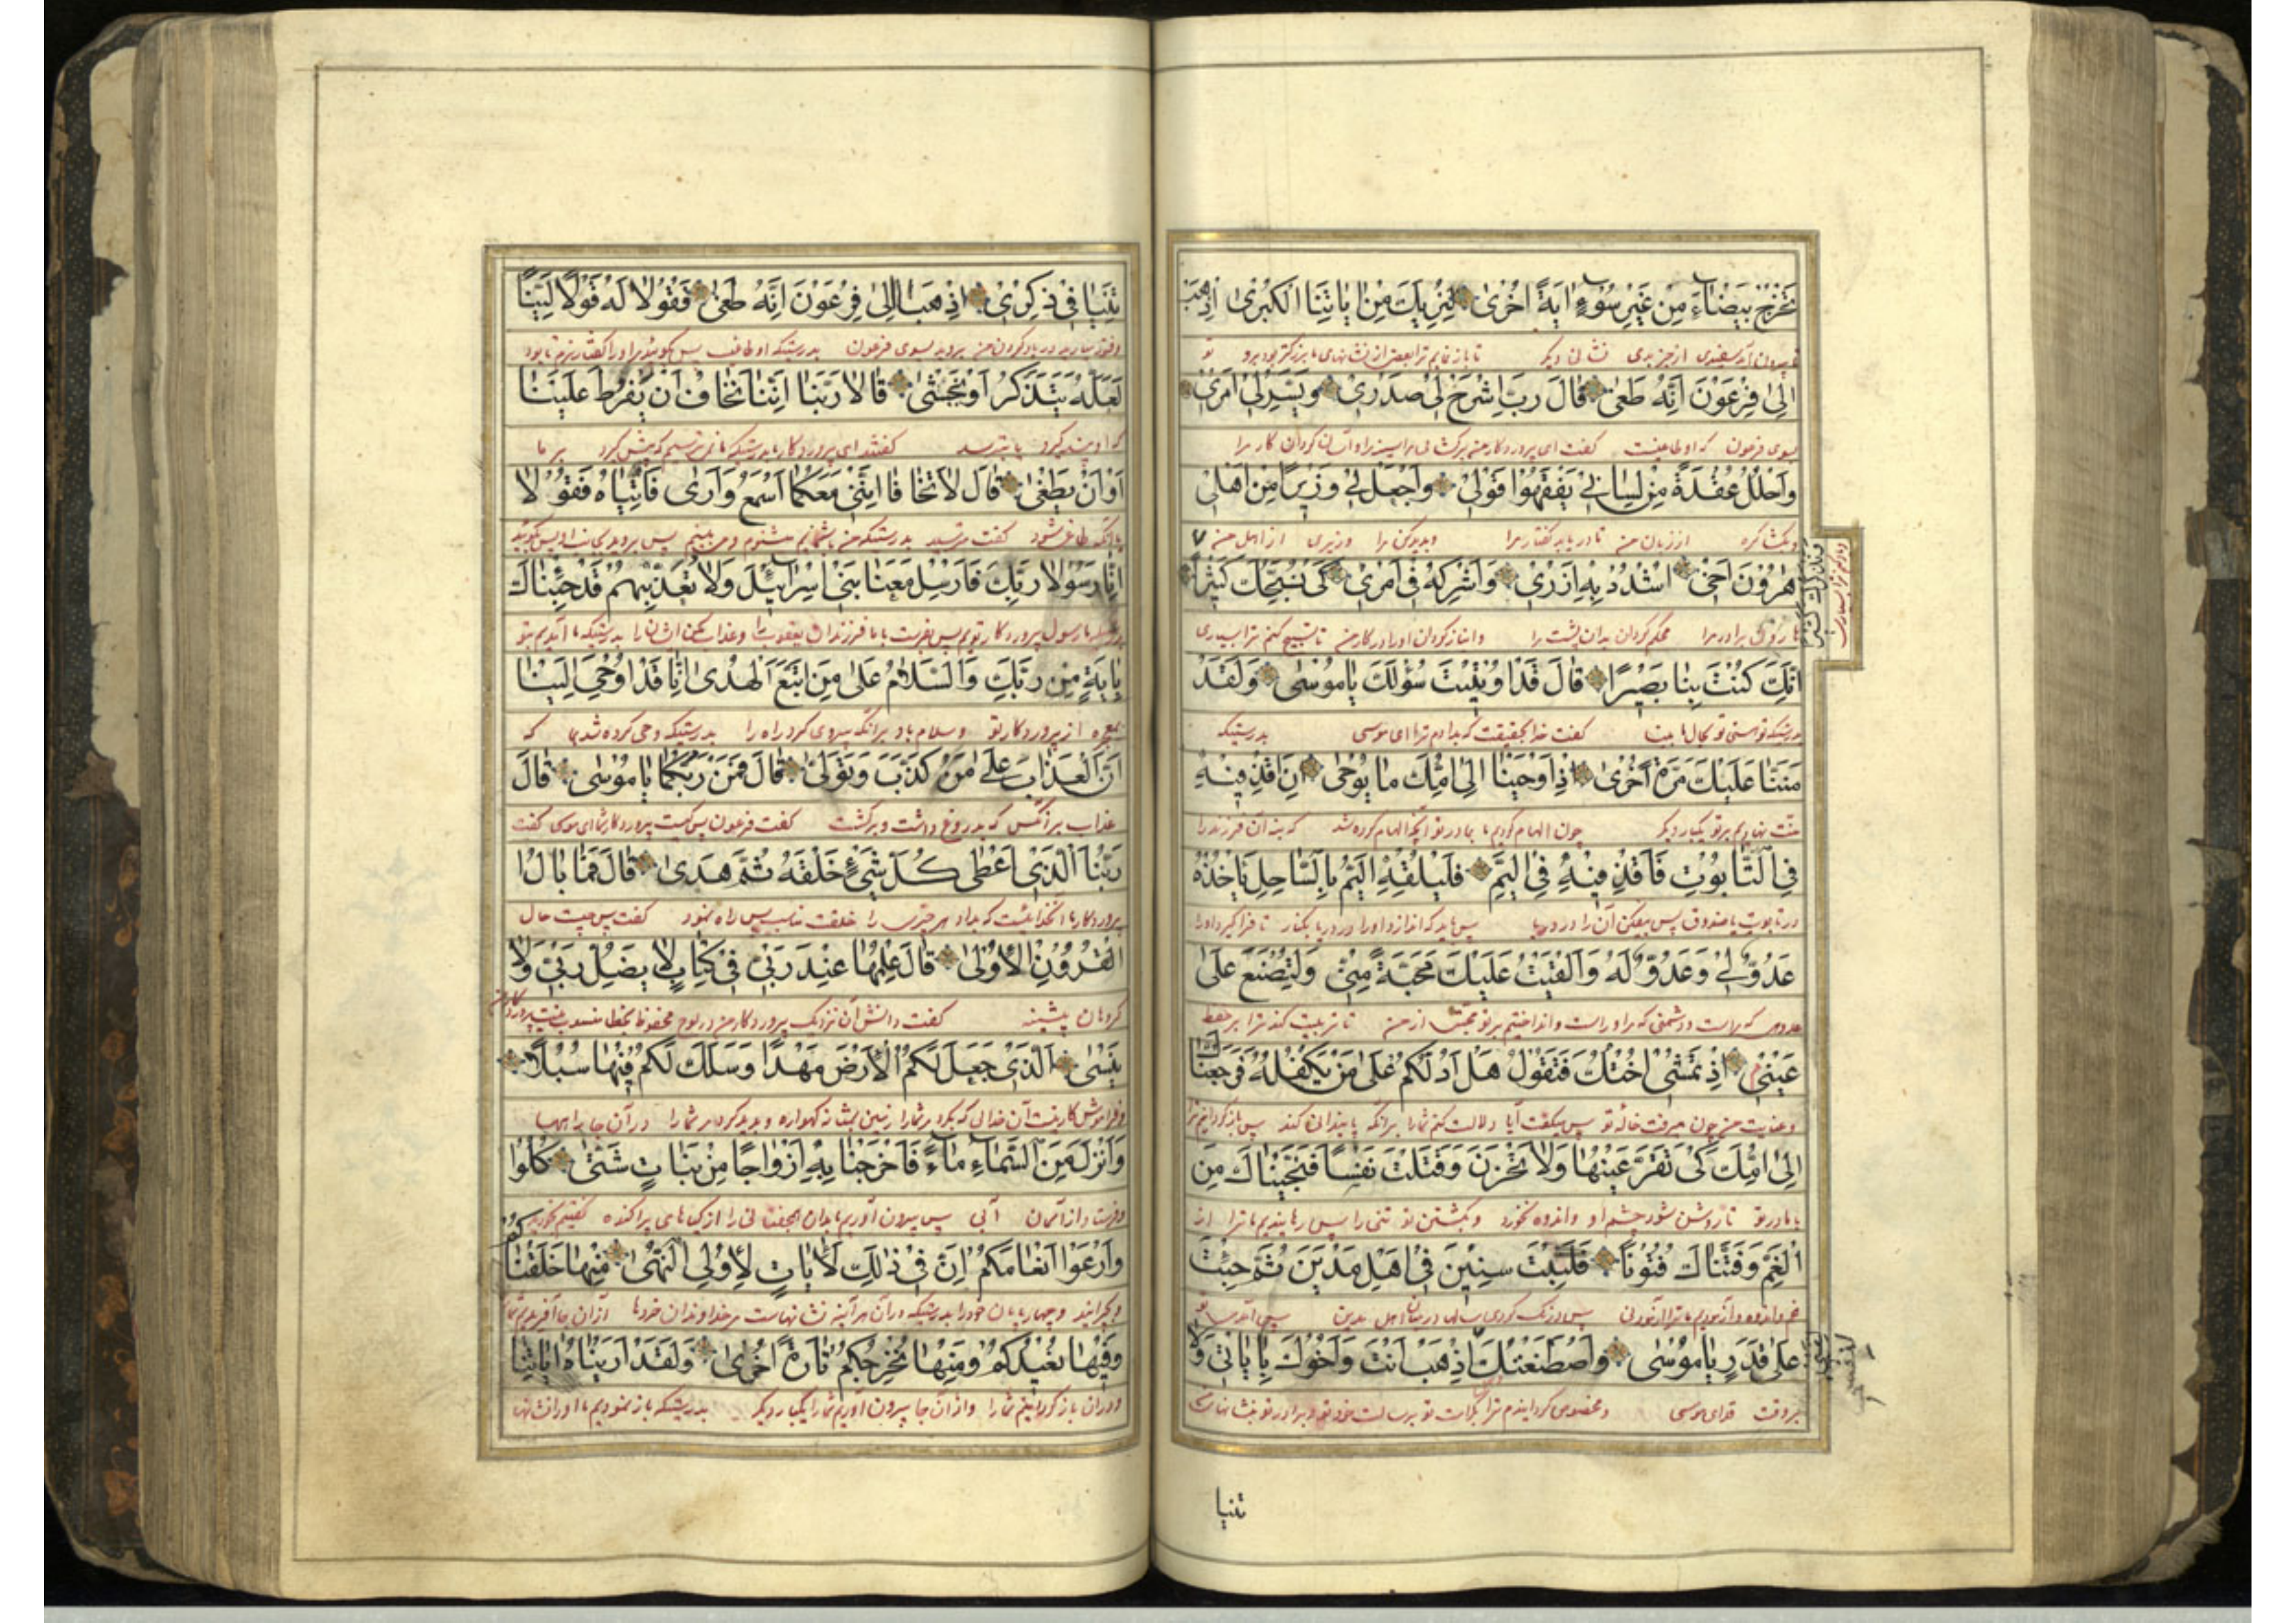 تَخْرُجْ بَيْضَاءَ مِنْ غَيْرِ سُوءٍ اٰيَةً اُخْرٰى لِنُرِيَكَ مِنْ اٰيَاتِنَا الْكُبْرٰى اِذْهَبْ
تا باز نمایم ترا بعضی از نشانهای ما بزرگتر بود برو تو
اِلٰى فِرْعَوْنَ اِنَّهُ طَغٰى قَالَ رَبِّ اشْرَحْ لِى صَدْرِى وَيَسِّرْ لِى اَمْرِى
بسوی فرعون که او طاغیست گفت ای پروردگار من
وَاحْلُلْ عُقْدَةً مِنْ لِسَانِى يَفْقَهُوا قَوْلِى وَاجْعَلْ لِى وَزِيرًا مِنْ اَهْلِى
از زبان من تا دریابد گفتار مرا و پدید کن مرا وزیری از اهل من
هٰرُوْنَ اَخِى اشْدُدْ بِهِ اَزْرِى وَاَشْرِكْهُ فِى اَمْرِى كَىْ نُسَبِّحَكَ كَثِيْرًا
وَنَذْكُرَكَ كَثِيْرًا
هارون برادر مرا محکم گردان بدان پشت مرا و انباز گردان او را در کار من تا تسبیح کنم ترا بسیاری
اِنَّكَ كُنْتَ بِنَا بَصِيْرًا قَالَ قَدْ اُوْتِيْتَ سُؤْلَكَ يَا مُوْسٰى وَلَقَدْ
بدرستیکه تو هستی تو بحال ما بینا گفت خدا بحقیقت که بدادم ترا ای موسی بدرستیکه
مَنَنَّا عَلَيْكَ مَرَّةً اُخْرٰى اِذْ اَوْحَيْنَا اِلٰى اُمِّكَ مَا يُوْحٰى اَنِ اقْذِفِيْهِ
منت نهادیم بر تو یکبار دیگر چون الهام کردیم ما بمادر تو آنچه الهام کرده شد که بنه آن فرزند را
فِى التَّابُوْتِ فَاقْذِفِيْهِ فِى الْيَمِّ فَلْيُلْقِهِ الْيَمُّ بِالسَّاحِلِ يَأْخُذْهُ
در تابوت یا صندوق پس بیفکن آن را در دریا پس باید که اندازد او را در دریا بکنار تا فرا گیرد او را
عَدُوٌّ لِى وَعَدُوٌّ لَهُ وَاَلْقَيْتُ عَلَيْكَ مَحَبَّةً مِنِّى وَلِتُصْنَعَ عَلٰى
که مراست و دشمنی که مر او راست و انداختیم بر تو محبت از من تا تربیت کند ترا بر حفظ
عَيْنِى اِذْ تَمْشِى اُخْتُكَ فَتَقُوْلُ هَلْ اَدُلُّكُمْ عَلٰى مَنْ يَكْفُلُهُ فَرَجَعْنَاكَ
و عنایت من چون میرفت خاله تو پس میگفت آیا دلالت کنم شما را بر آنکه پایندانی کند پس باز گردانیم ترا
اِلٰى اُمِّكَ كَىْ تَقَرَّ عَيْنُهَا وَلَا تَحْزَنَ وَقَتَلْتَ نَفْسًا فَنَجَّيْنَاكَ مِنَ
بمادر تو تا روشن شود چشم او و اندوه نخورد و بکشتن تو تنی را پس رهانیدیم ما ترا از
الْغَمِّ وَفَتَنَّاكَ فُتُوْنًا فَلَبِثْتَ سِنِيْنَ فِى اَهْلِ مَدْيَنَ ثُمَّ جِئْتَ
غم و اندوه و آزمودیم ما ترا آزمودنی پس درنگ کردی سالها در میان اهل مدین پس آمدی تو
عَلٰى قَدَرٍ يَا مُوْسٰى وَاصْطَنَعْتُكَ لِنَفْسِى اِذْهَبْ اَنْتَ وَاَخُوْكَ بِاٰيَاتِى وَلَا
و مخصوص گردانیدم ترا
تنیا
تَنِيَا فِى ذِكْرِى اِذْهَبَا اِلٰى فِرْعَوْنَ اِنَّهُ طَغٰى فَقُوْلَا لَهُ قَوْلًا لَيِّنًا
در یاد کردن من بروید بسوی فرعون بدرستیکه او طاغیست پس بگوئید مر او را گفتار نرم تا بود
لَعَلَّهُ يَتَذَكَّرُ اَوْ يَخْشٰى قَالَا رَبَّنَا اِنَّنَا نَخَافُ اَنْ يَفْرُطَ عَلَيْنَا
که او پند گیرد یا بترسد گفتند ای پروردگار ما بدرستیکه ما می ترسیم که پیشی گیرد بر ما
اَوْ اَنْ يَطْغٰى قَالَ لَا تَخَافَا اِنَّنِى مَعَكُمَا اَسْمَعُ وَاَرٰى فَأْتِيَاهُ فَقُوْلَا
یا آنکه طاغی شود گفت مترسید بدرستیکه من با شمایم میشنوم و می بینم پس بروید
اِنَّا رَسُوْلَا رَبِّكَ فَاَرْسِلْ مَعَنَا بَنِى اِسْرَائِيْلَ وَلَا تُعَذِّبْهُمْ قَدْ جِئْنَاكَ
رسول پروردگار توییم پس بفرست با ما فرزندان یعقوب را و عذاب مکن ایشان را بدرستیکه ما آمدیم بتو
بِاٰيَةٍ مِنْ رَبِّكَ وَالسَّلَامُ عَلٰى مَنِ اتَّبَعَ الْهُدٰى اِنَّا قَدْ اُوْحِىَ اِلَيْنَا
از پروردگار تو و سلام باد بر آنکه پیروی کرد راه را بدرستیکه وحی کرده شد بما که
اَنَّ الْعَذَابَ عَلٰى مَنْ كَذَّبَ وَتَوَلّٰى قَالَ فَمَنْ رَبُّكُمَا يَا مُوْسٰى قَالَ
عذاب بر آنکس که بدروغ داشت و برگشت گفت فرعون پس کیست پروردگار شما ای موسی گفت
رَبُّنَا الَّذِى اَعْطٰى كُلَّ شَىْءٍ خَلْقَهُ ثُمَّ هَدٰى قَالَ فَمَا بَالُ
پروردگار ما آنخدائیست که بداد هر چیزی را خلقت مناسب پس راه نمود گفت پس چیست حال
الْقُرُوْنِ الْاُوْلٰى قَالَ عِلْمُهَا عِنْدَ رَبِّى فِى كِتَابٍ لَا يَضِلُّ رَبِّى وَلَا
گروهان پیشینه گفت دانش آن نزدیک پروردگار من در لوح محفوظ
يَنْسٰى اَلَّذِى جَعَلَ لَكُمُ الْاَرْضَ مَهْدًا وَسَلَكَ لَكُمْ فِيْهَا سُبُلًا
آن خدائی که بکرد مر شما را زمین بمثابه گهواره و پدید کرد مر شما را در آن جا راهها
وَاَنْزَلَ مِنَ السَّمَاءِ مَاءً فَاَخْرَجْنَا بِهِ اَزْوَاجًا مِنْ نَبَاتٍ شَتّٰى كُلُوْا
و فرستاد از آسمان آبی پس بیرون آوریم ما بدان از گیاهای پراکنده گفتیم بخورید
وَارْعَوْا اَنْعَامَكُمْ اِنَّ فِى ذٰلِكَ لَاٰيَاتٍ لِاُوْلِى النُّهٰى مِنْهَا خَلَقْنَاكُمْ
و بچرانید چهارپایان خود را بدرستیکه در آن هرآینه نشانهاست مر خداوندان خردها از آن جا آفریدیم
وَفِيْهَا نُعِيْدُكُمْ وَمِنْهَا نُخْرِجُكُمْ تَارَةً اُخْرٰى وَلَقَدْ اَرَيْنَاهُ اٰيَاتِنَا
و در آن باز گردانیم شما را و از آن جا بیرون آوریم شما را یکبار دیگر بدرستیکه باز نمودیم ما او را نشانها